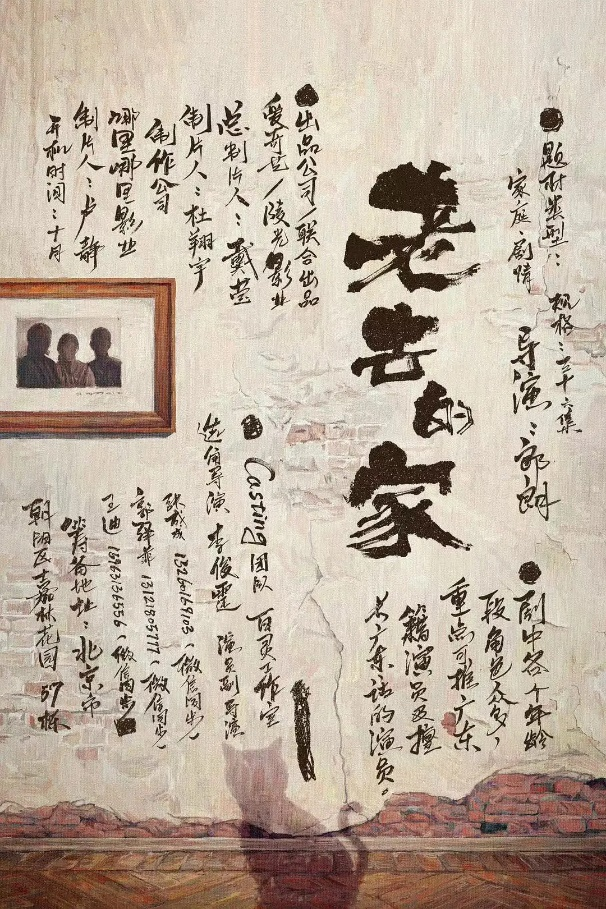 题材类型：
家庭、剧情
规格：三十六集
导演：郭朗
剧中各个年龄
段角色众多，
重点可推广东
籍演员及擅
长广东话的演员。
老去的家
出品公司/联合出品
爱奇艺/陵光影业
总制片人：戴莹
制片人：杜翔宇
制作公司
哪里哪里影业
制片人：卢静
开机时间：十月
Casting团队 百灵工作室
选角导演 李俊霆 演员副导演
13260169103（微信同步）
13121805777（微信同步）
王迪 15963136556（微信同步）
地址：北京市
朝阳区嘉林花园57栋